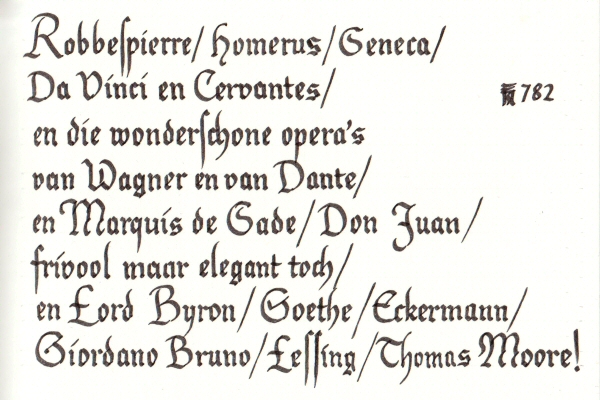 Robbeſpierre/ Homerus/Seneca/
Da Vinci en Cervantes/
782
en die wonderſchone opera's
van Wagner en van Dante/
en Marquis de Sade/Don Juan/
frivool maar elegant toch/
en Lord Byron/Goethe/Eckermann/
Giordano Bruno/Leſſing/Thomas Moore!